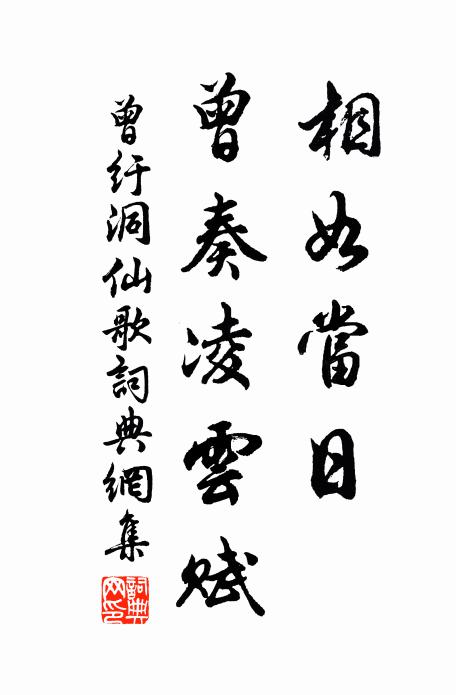 相如當日
曾奏凌雲賦
曾紆洞仙歌詞典網集
詞典網印